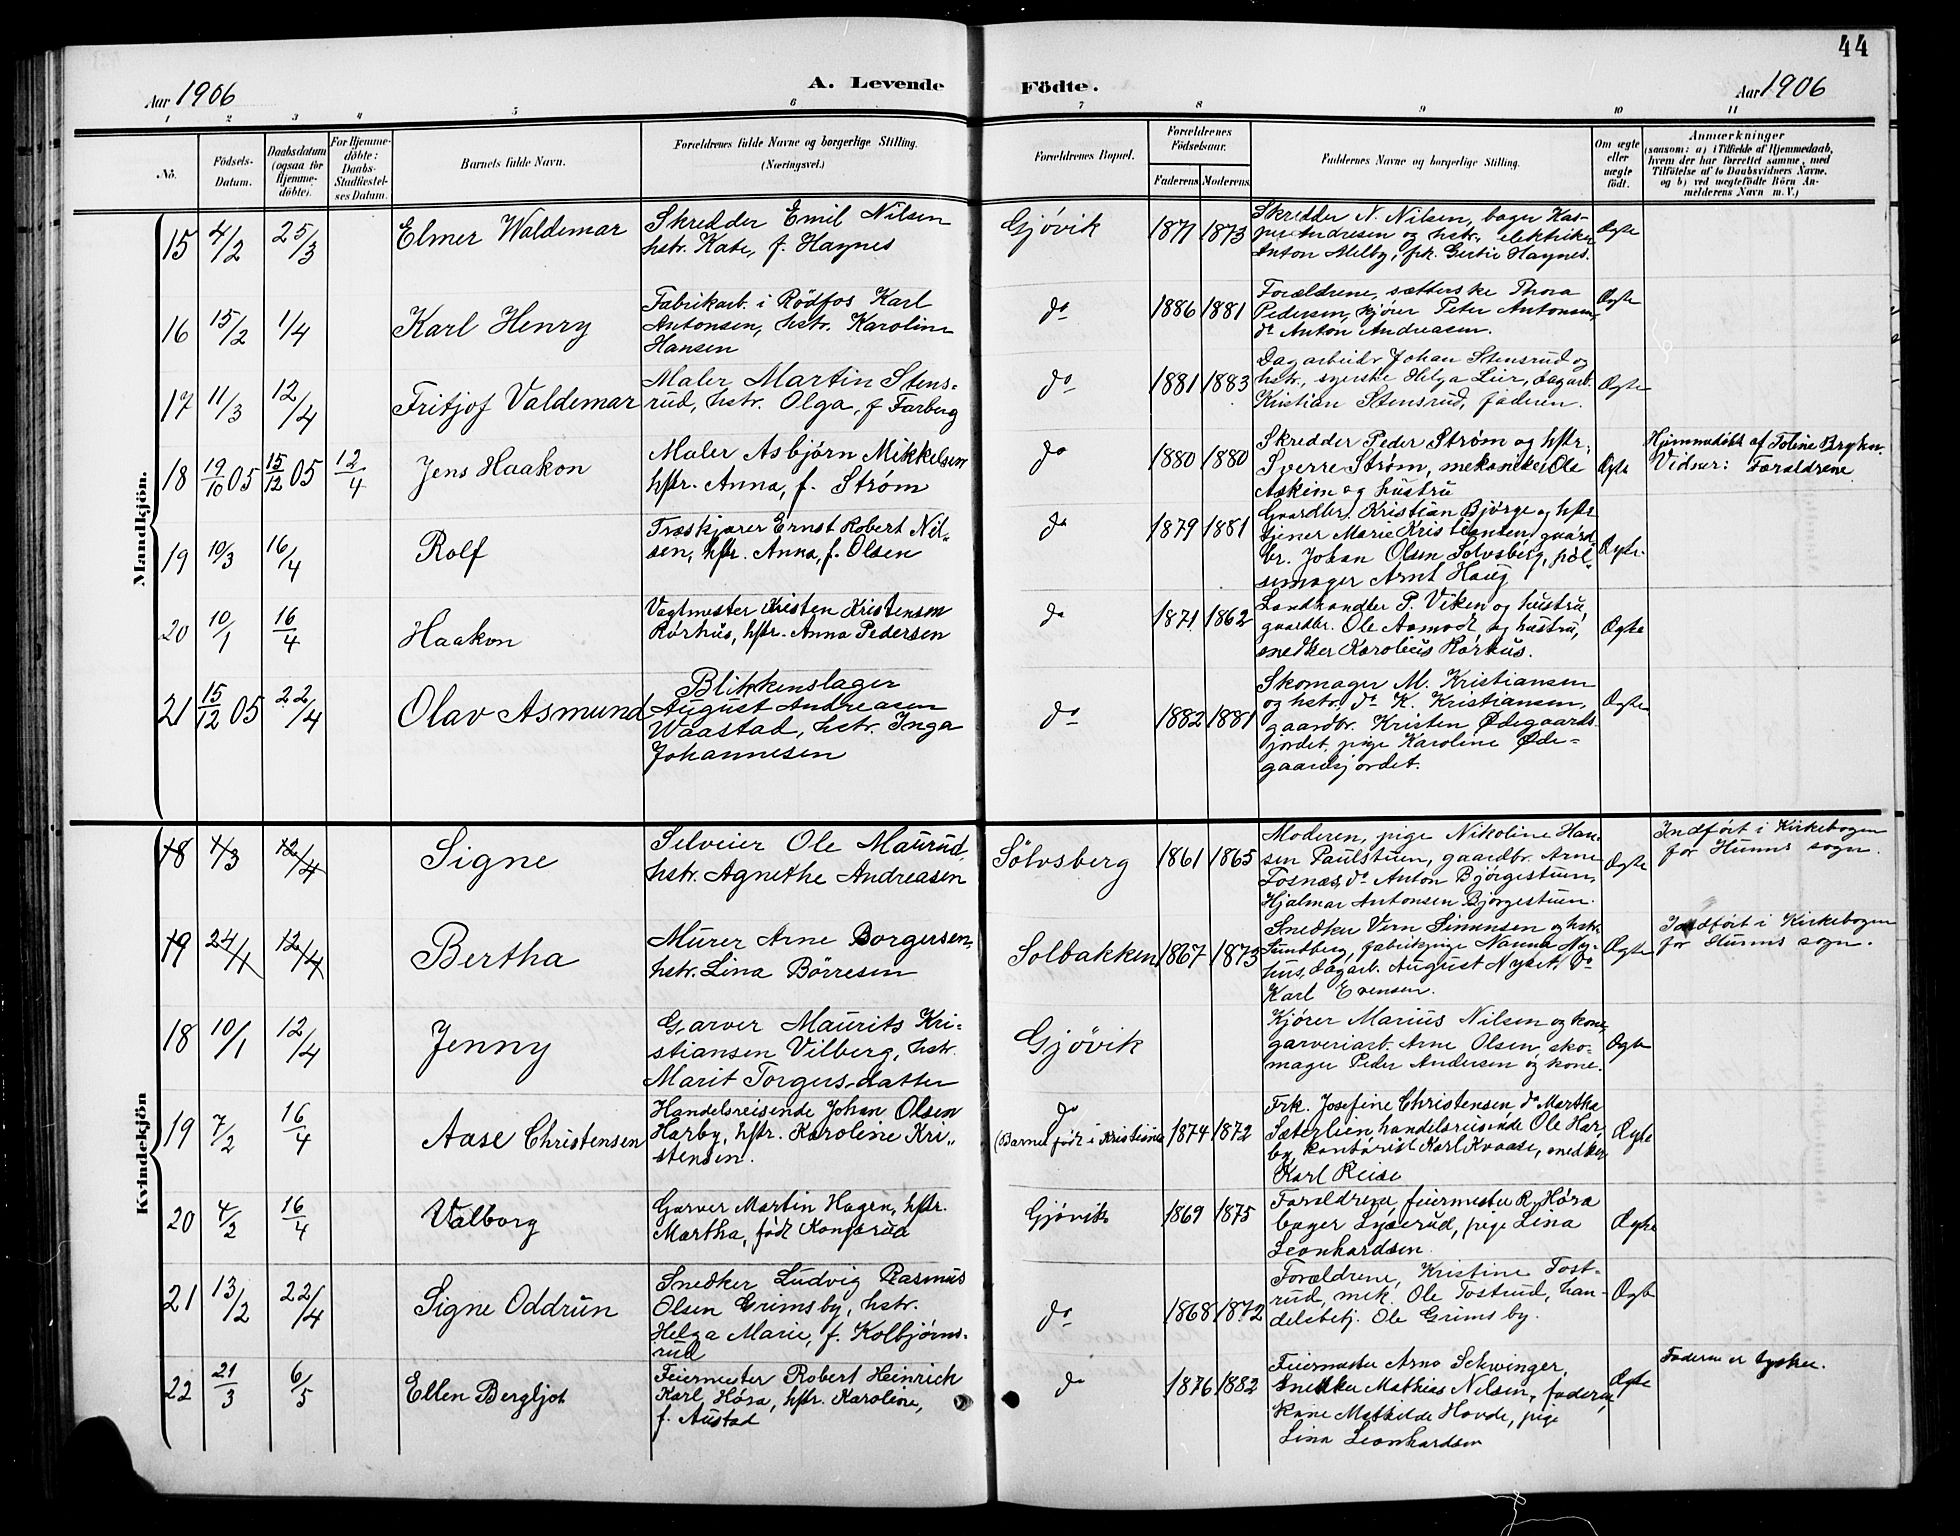 44
Aar 1906
A. Levende
Födte.
Aar 1906
1 2 3 4 5 6 7 8 9 10 11
No.
Födsels-
Datum.
Daabsdatum
(ogsaa for
Hjemme-
döbte).
For Hjemme-
döbte:
Daabs-
Stadfæstel-
ses Datum.
Barnets fulde Navn.
Forældrenes fulde Navne og borgerlige Stilling.
(Næringsvei.)
Forældrenes Bopæl.
Forældrenes
Födselsaar.
Faderens Moderens
Faddernes Navne og borgerlige Stilling.
Om ægte
eller
uægte
födt.
Anmærkninger
(saasom: a) i Tilfælde af Hjemmedaab,
hvem der har forrettet samme, med
Tilföielse af to Daabsvidners Navne,
og b) ved uægtefödte Börn An-
melderens Navn m. V.)
Mandkjön.
15 4/2 25/3 Elmer Waldemar
Skredder Emil Nilsen
hstr. Kate, f. Haynes
Gjøvik 1871 1873
Skredder N. Nilsen, bager Kas-
per Andresen og hstr., elektriker
Anton Melby, frk. Gertie Haynes.
Ægte
16 15/2 1/4 Karl Henry
Fabrikarb. i Rödfos Karl
Antonsen, hstr. Karoline
Hansen
do 1886 1881
Forældrene, sætterske Thora
Pedersen, kjører Peter Antonsen,
do Anton Andreasen.
Ægte
17 11/3 12/4 Fritjof Valdemar
Maler Martin Stens-
rud, hstr. Olga, f Farberg
do 1881 1883
Dagarbeider Johan Stensrud og
hstr., syerske Helga Lier, dagarb.
Kristian Stensrud, faderen.
Ægte
18 19/10 05 15/12 05 12/4 Jens Haakon
Maler Asbjørn Mikkelsen
hstr. Anna, f. Strøm
do 1880 1880
Skredder Peder Strøm og hstr.,
Sverre Strøm, mekaniker Ole
Askim og hustru
Ægte
Hjemmedøbt af Toline Bryhn.
Vidner: Forældrene
19 10/3 16/4 Rolf
Træskjærer Ernst Robert Nil-
sen, hstr. Anna, f. Olsen
do 1879 1881
Gaardbr. Kristian Bjørge og hstr
tjener Marie Kristiansen, gaard-
br. Johan Olsen Solvsberg, pøl-
semager Arnt Haug
Ægte.
20 10/1 16/4 Haakon
Vagtmester Kristen Kristensen
Rørhus, hstr. Anna Pedersen
do 1871 1862
Landhandler P. Viken og hustru,
gaardbr. Ole Aamodt og hustru,
snedker Karolius Rørhus.
Ægte
21 15/12 05 22/4 Olav Asmund
Blikkenslager
August Andreasen
Waastad, hstr. Inga
Johannesen
do 1882 1881
Skomager M. Kristiansen
og hstr. do K. Kristiansen,
gaardbr. Kristen Ødegaards-
jordet, pige Karoline Øde-
gaardsjordet.
Ægte
Kvindekjön
18 1/3 12/4 Signe
Selveier Ole Maurud,
hstr. Agnethe Andreasen
Sölvsberg 1861 1865
Moderen, pige Nikoline Han-
sen Paulstuen, gaardbr. Arne
Fosnæs, do Anton Bjørgestuen,
Hjalmar Antonsen Bjørgestuen.
Ægte
Indført i Kirkebogen
for Hunns sogn.
19 24/1 12/4 Bertha
Murer Arne Borgersen,
hstr. Lina Börresen
Solbakken 1867 1873
Snedker Simensen og hstr.
Sundberg, fabrikpige Nanna Ny-
hus, dagarb. August Nyset, do
Karl Evensen.
Ægte
Indført i Kirkebogen
for Hunns sogn.
18 10/1 12/4 Jenny
Garver Maurits Kri-
stiansen Vilberg, hstr.
Marit Torgersdatter
Gjövik
Kjører Marius Nilsen og kone,
garveriarb. Arne Olsen, sko-
mager Peder Andersen og kone.
Ægte
19 7/2 16/4 Aase Christensen
Handelsreisende Johan Olsen
Harby, hstr. Karoline Kri-
stensen.
do
(Barnet født i Kristiania 1874 1872
Frk. Josefine Christensen, do Martha
Sæterlien, handelsreisende Ole Har-
by, kontorist Karl Kvaase, snedker
Karl Reise
Ægte
20 4/2 16/4 Valborg
Garver Martin Hagen, hstr.
Martha, født Kongsrud
Gjøvik 1869 1875
Forældrene, feiermester R. Høra
bager Lyserud, pige Lina
Leonhardsen
Ægte
21 13/2 22/4 Signe Oddrun
Snedker Ludvig Rasmus
Olsen Grimsby, hstr.
Helga Marie, f. Kolbjørns-
rud
do 1868 1872
Forældrene, Kristine Tost-
rud, mek. Ole Tostrud, han-
delsbetj. Ole Grimsby.
Ægte
22 21/3 6/5 Ellen Bergljot
Feiermester Robert Heinrich
Karl Høra, hstr. Karoline,
f. Austad
do 1876 1882
Feiermester Arno Schwinger,
Snedker Mathias Nilsen, faderen,
Kone Mathilde Hovde, pige
Lina Leonhardsen
Ægte
Faderen er tysker.